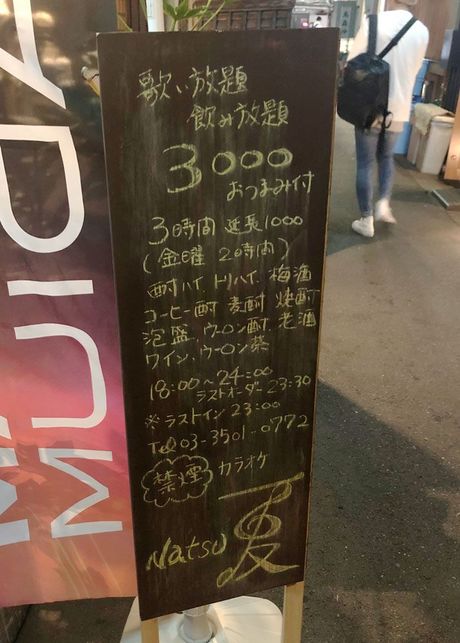 歌い放題
飲み放題
3000
おつまみ付
3時間 延長1000
(金曜 2時間)
酎ハイ、トリハイ、梅酒
コーヒー酎、麦酎、焼酎
泡盛、ウーロン酎、老酒
ワイン、ウーロン茶
18:00～24:00
ラストオーダー23:30
※ラストイン23:00
Tel 03-3501-0772
禁煙 カラオケ
Natsu 夏